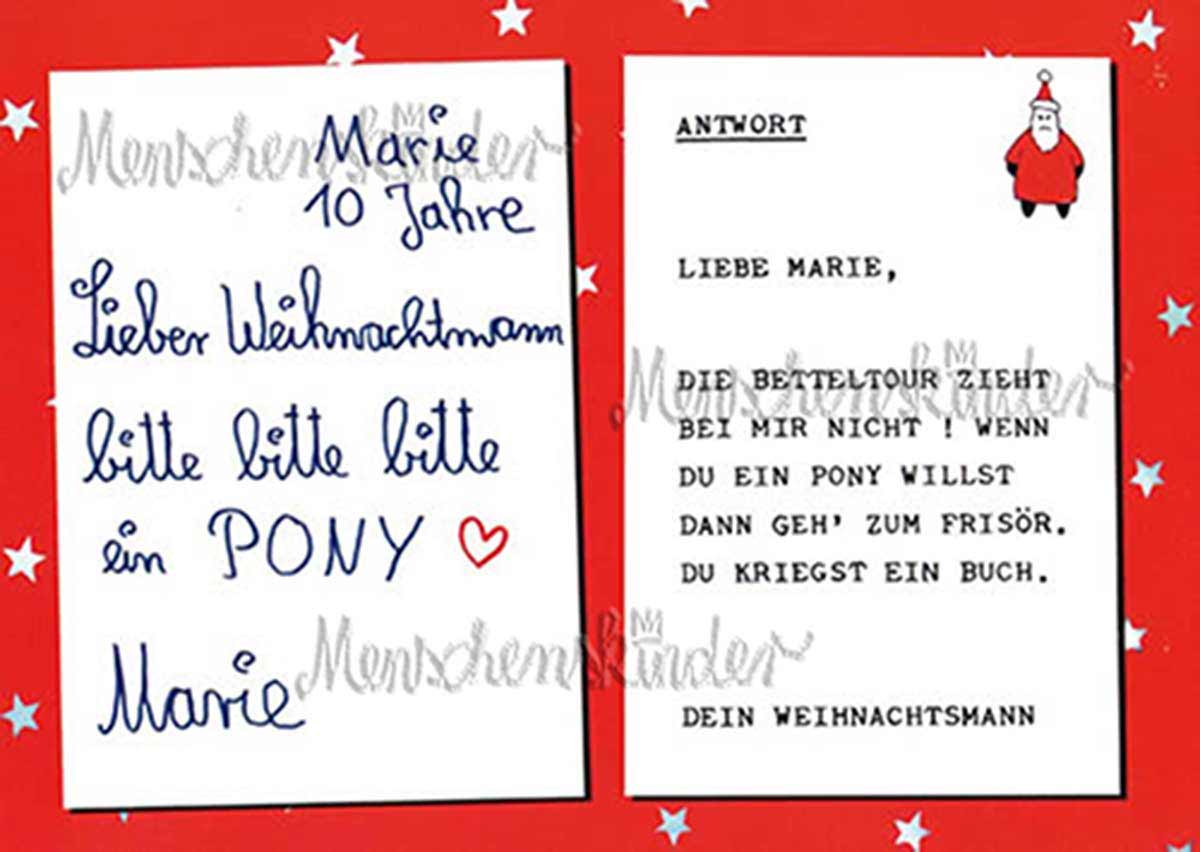 Marie
10 Jahre
Lieber Weihnachtmann
bitte bitte bitte
ein PONY
Marie
ANTWORT
LIEBE MARIE,
DIE BETTELTOUR ZIEHT
BEI MIR NICHT ! WENN
DU EIN PONY WILLST
DANN GEH' ZUM FRISÖR.
DU KRIEGST EIN BUCH.
DEIN WEIHNACHTSMANN
Menschenskinder
Menschenskinder
Menschenskinder